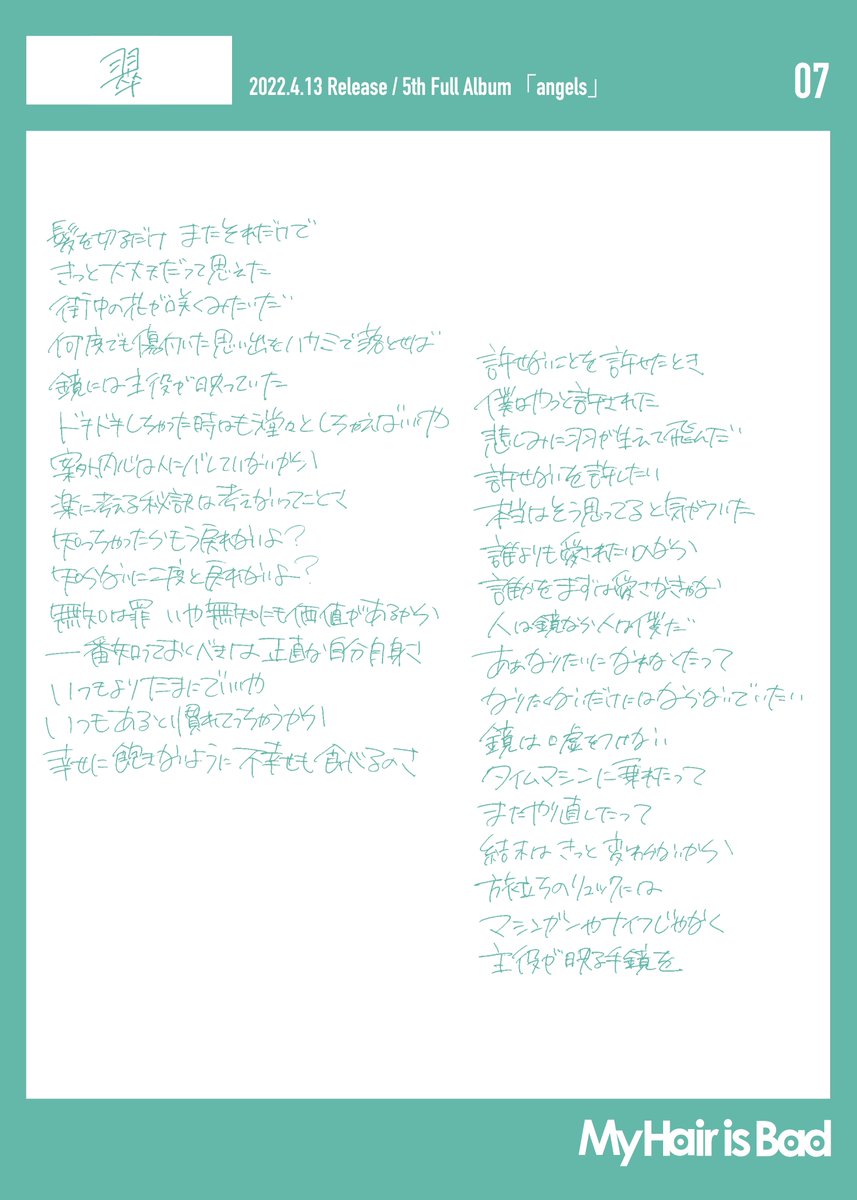 翠
2022.4.13 Release / 5th Full Album 「angels」
07
髪を切るだけ またそれだけで
きっと大丈夫だって思えた
街中の花が咲くみたいだ
何度でも傷付いた思い出をハサミで落とせば
鏡には主役が映っていた
ドキドキしちゃった時はもう堂々としちゃえばいいや
案外内心は人にバレしていないから
楽に考える秘訣は考えないってことさ
知っちゃったらもう戻れないよ?
知らないに二度と戻れないよ?
無知は罪 いや無知にも価値があるから
一番知っておくべきは正直な自分自身さ
いつもよりたまにでいいや
いつもあると慣れてっちゃうから
幸せに飽きないように不幸せも食べるのさ
許せないことを許せたとき
僕はやっと許された
悲しみに羽が生えて飛んだ
許せないを許したい
本当はそう思ってると気がついた
誰よりも愛されたいのなら
誰かをまずは愛さなきゃな
人は鏡なら人は僕だ
あぁなりたいになれなくたって
なりたくないだけにはならないでいたい
鏡は嘘をつけない
タイムマシンに乗れたって
またやり直したって
結末はきっと変わらないから
旅立ちのリュックには
マシンガンやナイフじゃなく
主役が映る手鏡を
My Hair is Bad